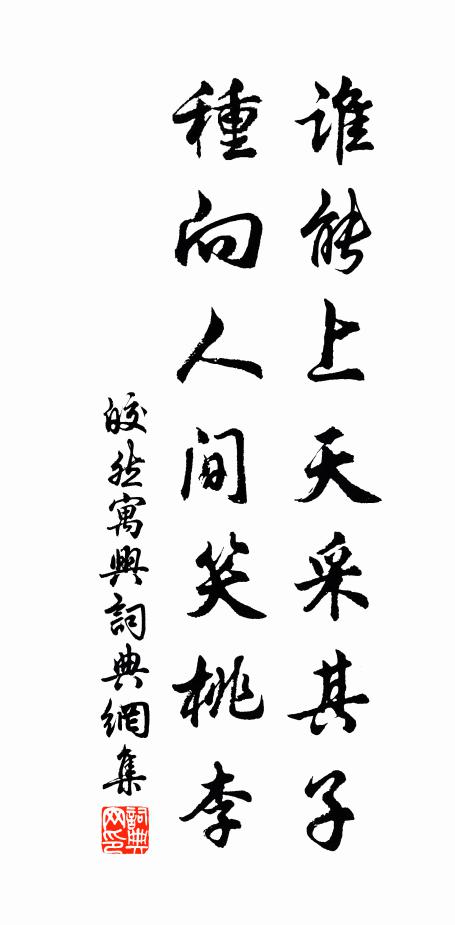 谁能上天采其子
種向人间笑桃李
皎然寓興詞典網集
詞典网印